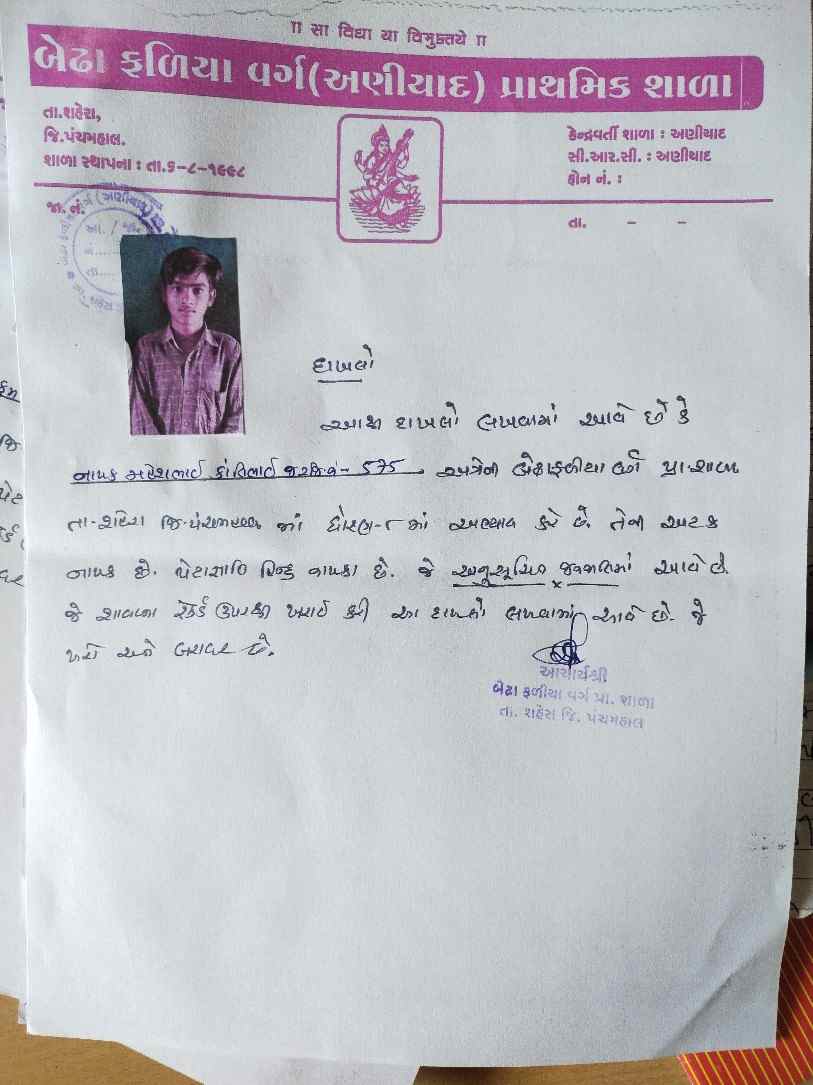 ॥ सा विद्या या विमुक्तये ॥
બેઢા ફળિયા વર્ગ(અણીયાદ) પ્રાથમિક શાળા
તા.શહેરા,
જિ.પંચમહાલ.
શાળા સ્થાપના : તા.૧-૮-૧૯૯૮
કેન્દ્રવર્તી શાળા : અણીયાદ
સી.આર.સી. : અણીયાદ
ફોન નં. :
જા. નં.
તા. - -
દાખલો
આથી દાખલો લખવામાં આવે છે કે
નાયક મહેશભાઈ કાંતિભાઈ જ.રજિ.નં - 575 અત્રેની બેઢાફળીયા વર્ગ પ્રા.શાળા
તા-શહેરા જિ-પંચમહાલ માં ધોરણ-૮ માં અભ્યાસ કરે છે. તેની અટક
નાયક છે. પેટાજાતિ હિન્દુ નાયકા છે. જે અનુસૂચિત જનજાતિમાં આવે છે.
જે શાળાના રેકર્ડ ઉપરથી ખરાઈ કરી આ દાખલો લખવામાં આવે છે. જે
ખરો અને બરાબર છે.
આચાર્યશ્રી
બેઢા ફળીયા વર્ગ પ્રા. શાળા
તા. શહેરા જિ. પંચમહાલ